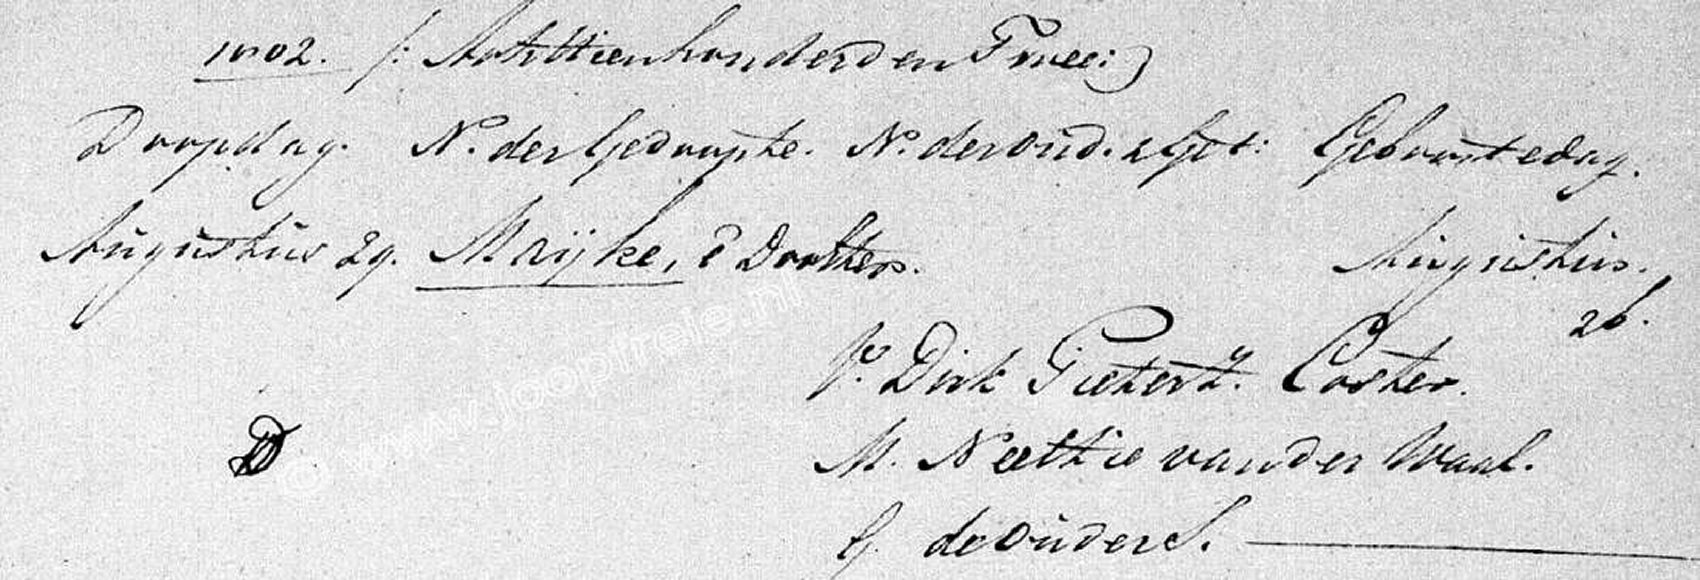 1802. /: Achttienhonderd en Twee:)
Doopdag. N. der Gedoopte. N. der oud. & Get: Geboortedag.
Augustus 29. Maijke, Dochter. Augustus.
26.
V. Dirk Pieterz. Coster.
D M. Neeltie van der Waal.
G. de Ouders.
www.jaopmeie.nl